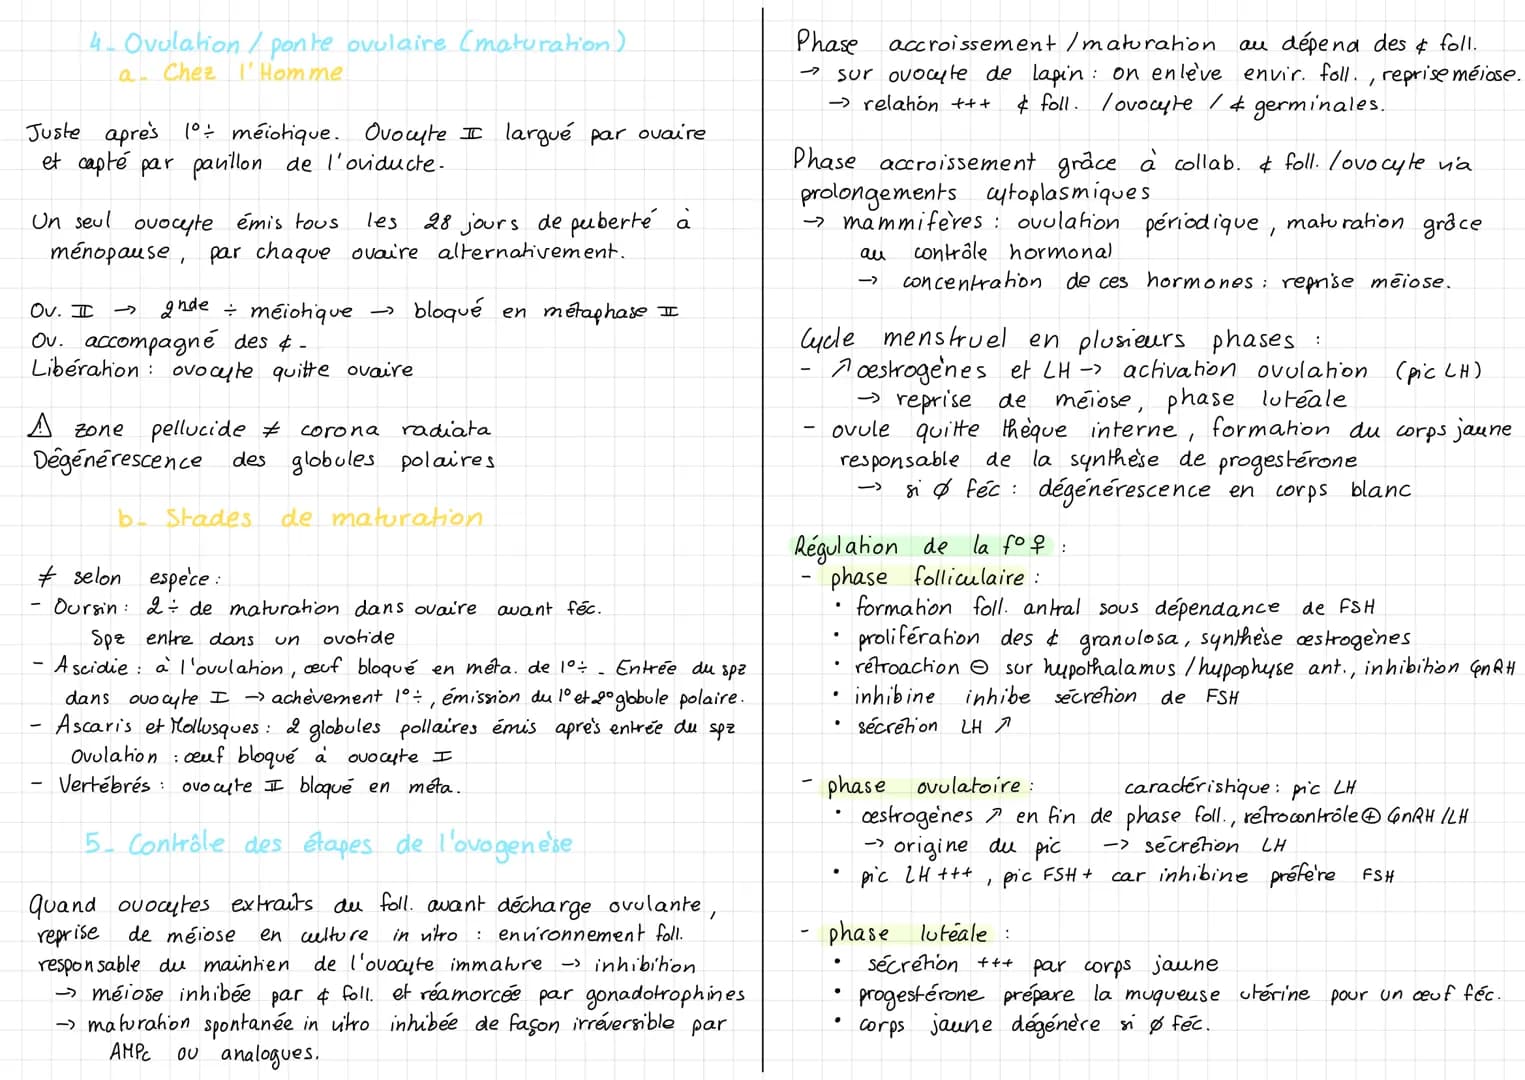 4- Ovulation / ponte ovulaire (maturation)
a- Chez l'Homme
Juste après 1°÷ méiotique. Ovocyte II largué par ovaire
et capté par pavillon de l'oviducte.
Un seul ovocyte émis tous les 28 jours de puberté à
ménopause, par chaque ovaire alternativement.
Ov. II → 2nde ÷ méiotique → bloqué en métaphase II
Ov. accompagné des ¢.
Libération : ovocyte quitte ovaire
⚠ zone pellucide ≠ corona radiata
Dégénérescence des globules polaires
b- Stades de maturation
≠ selon espèce :
- Oursin : 2 ÷ de maturation dans ovaire avant féc.
Spz entre dans un ovotide
- Ascidie : à l'ovulation, œuf bloqué en méta. de 1°÷. Entrée du spz
dans ovocyte I → achèvement 1°÷, émission du 1° et 2° globule polaire.
- Ascaris et Mollusques : 2 globules pollaires émis après entrée du spz
Ovulation : œuf bloqué à ovocyte I
- Vertébrés : ovocyte II bloqué en méta.
5- Contrôle des étapes de l'ovogenèse
Quand ovocytes extraits du foll. avant décharge ovulante,
reprise de méiose en culture in vitro : environnement foll.
responsable du maintien de l'ovocyte immature → inhibition
→ méiose inhibée par ¢ foll. et réamorcée par gonadotrophines
→ maturation spontanée in vitro inhibée de façon irréversible par
AMPc ou analogues.
Phase accroissement / maturation au dépend des ¢ foll.
→ sur ovocyte de lapin : on enlève envir. foll., reprise méiose.
→ relation +++ ¢ foll. / ovocyte / ¢ germinales.
Phase accroissement grâce à collab. ¢ foll. / ovocyte via
prolongements cytoplasmiques
→ mammifères : ovulation périodique, maturation grâce
au contrôle hormonal
→ concentration de ces hormones : reprise méiose.
Cycle menstruel en plusieurs phases :
- ↗ œstrogènes et LH → activation ovulation (pic LH)
→ reprise de méiose, phase lutéale
- ovule quitte thèque interne, formation du corps jaune
responsable de la synthèse de progestérone
→ si Ø féc : dégénérescence en corps blanc
Régulation de la f° ♀ :
- phase folliculaire :
• formation foll. antral sous dépendance de FSH
• prolifération des ¢ granulosa, synthèse œstrogènes
• rétroaction ⊖ sur hypothalamus / hypophyse ant., inhibition GnRH
• inhibine inhibe sécrétion de FSH
• sécrétion LH ↗
- phase ovulatoire : caractéristique : pic LH
• œstrogènes ↗ en fin de phase foll., rétrocontrôle ⊕ GnRH / LH
→ origine du pic → sécrétion LH
• pic LH +++, pic FSH + car inhibine préfère FSH
- phase lutéale :
• sécrétion +++ par corps jaune
• progestérone prépare la muqueuse utérine pour un œuf féc.
• corps jaune dégénère si Ø féc.